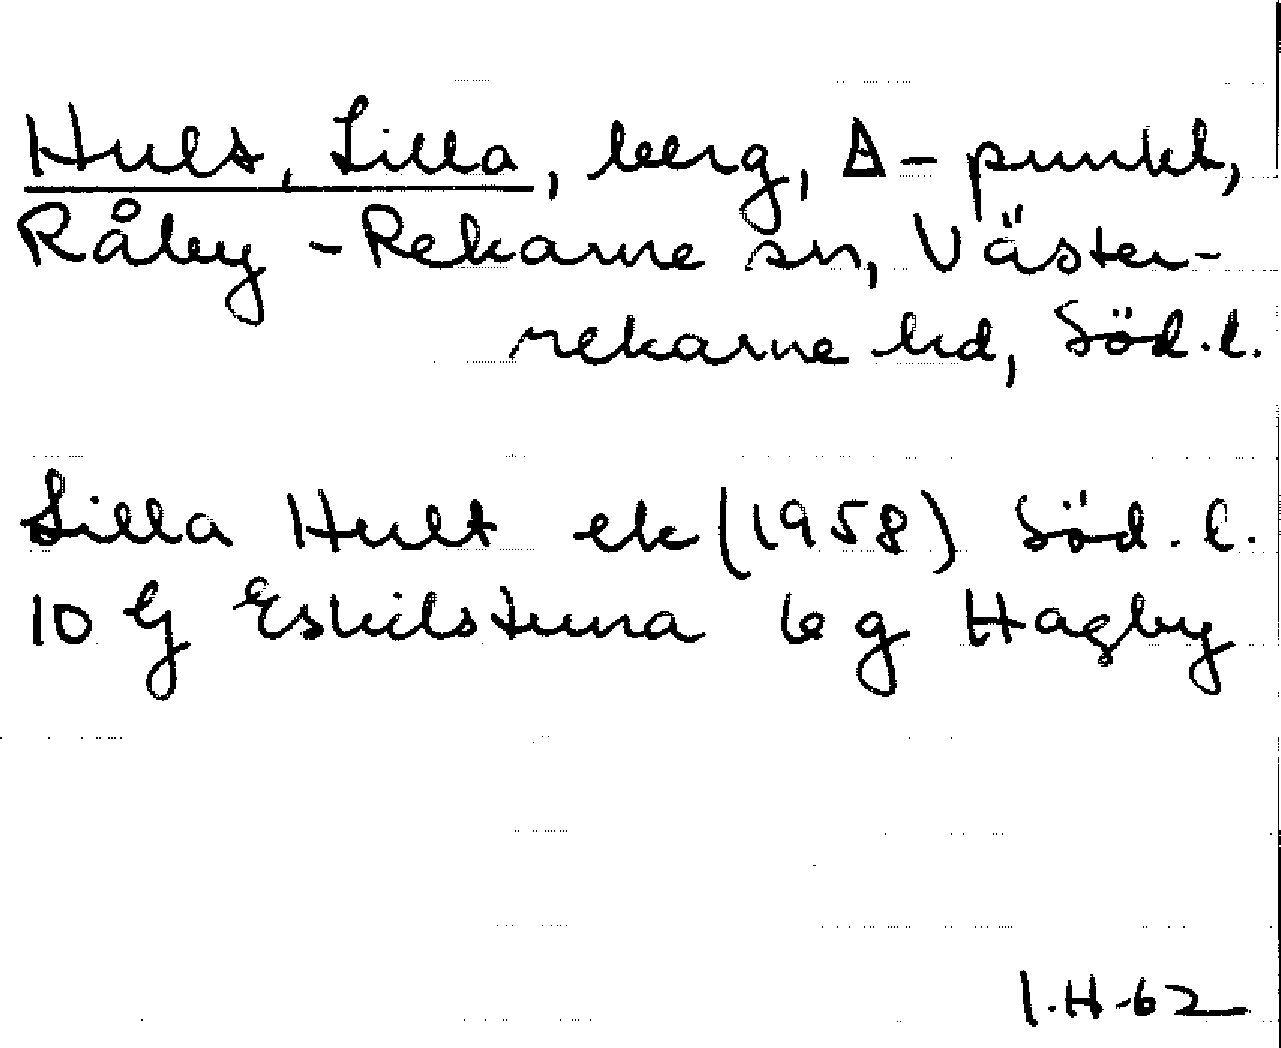 Hult, Lilla, berg, Δ-punkt,
Råby-Rekarne sn, Väster-
rekarne hd, Söd.l.
Lilla Hult ek (1958) Söd.l.
10 G Eskilstuna 6 g Hagby
I.H-62